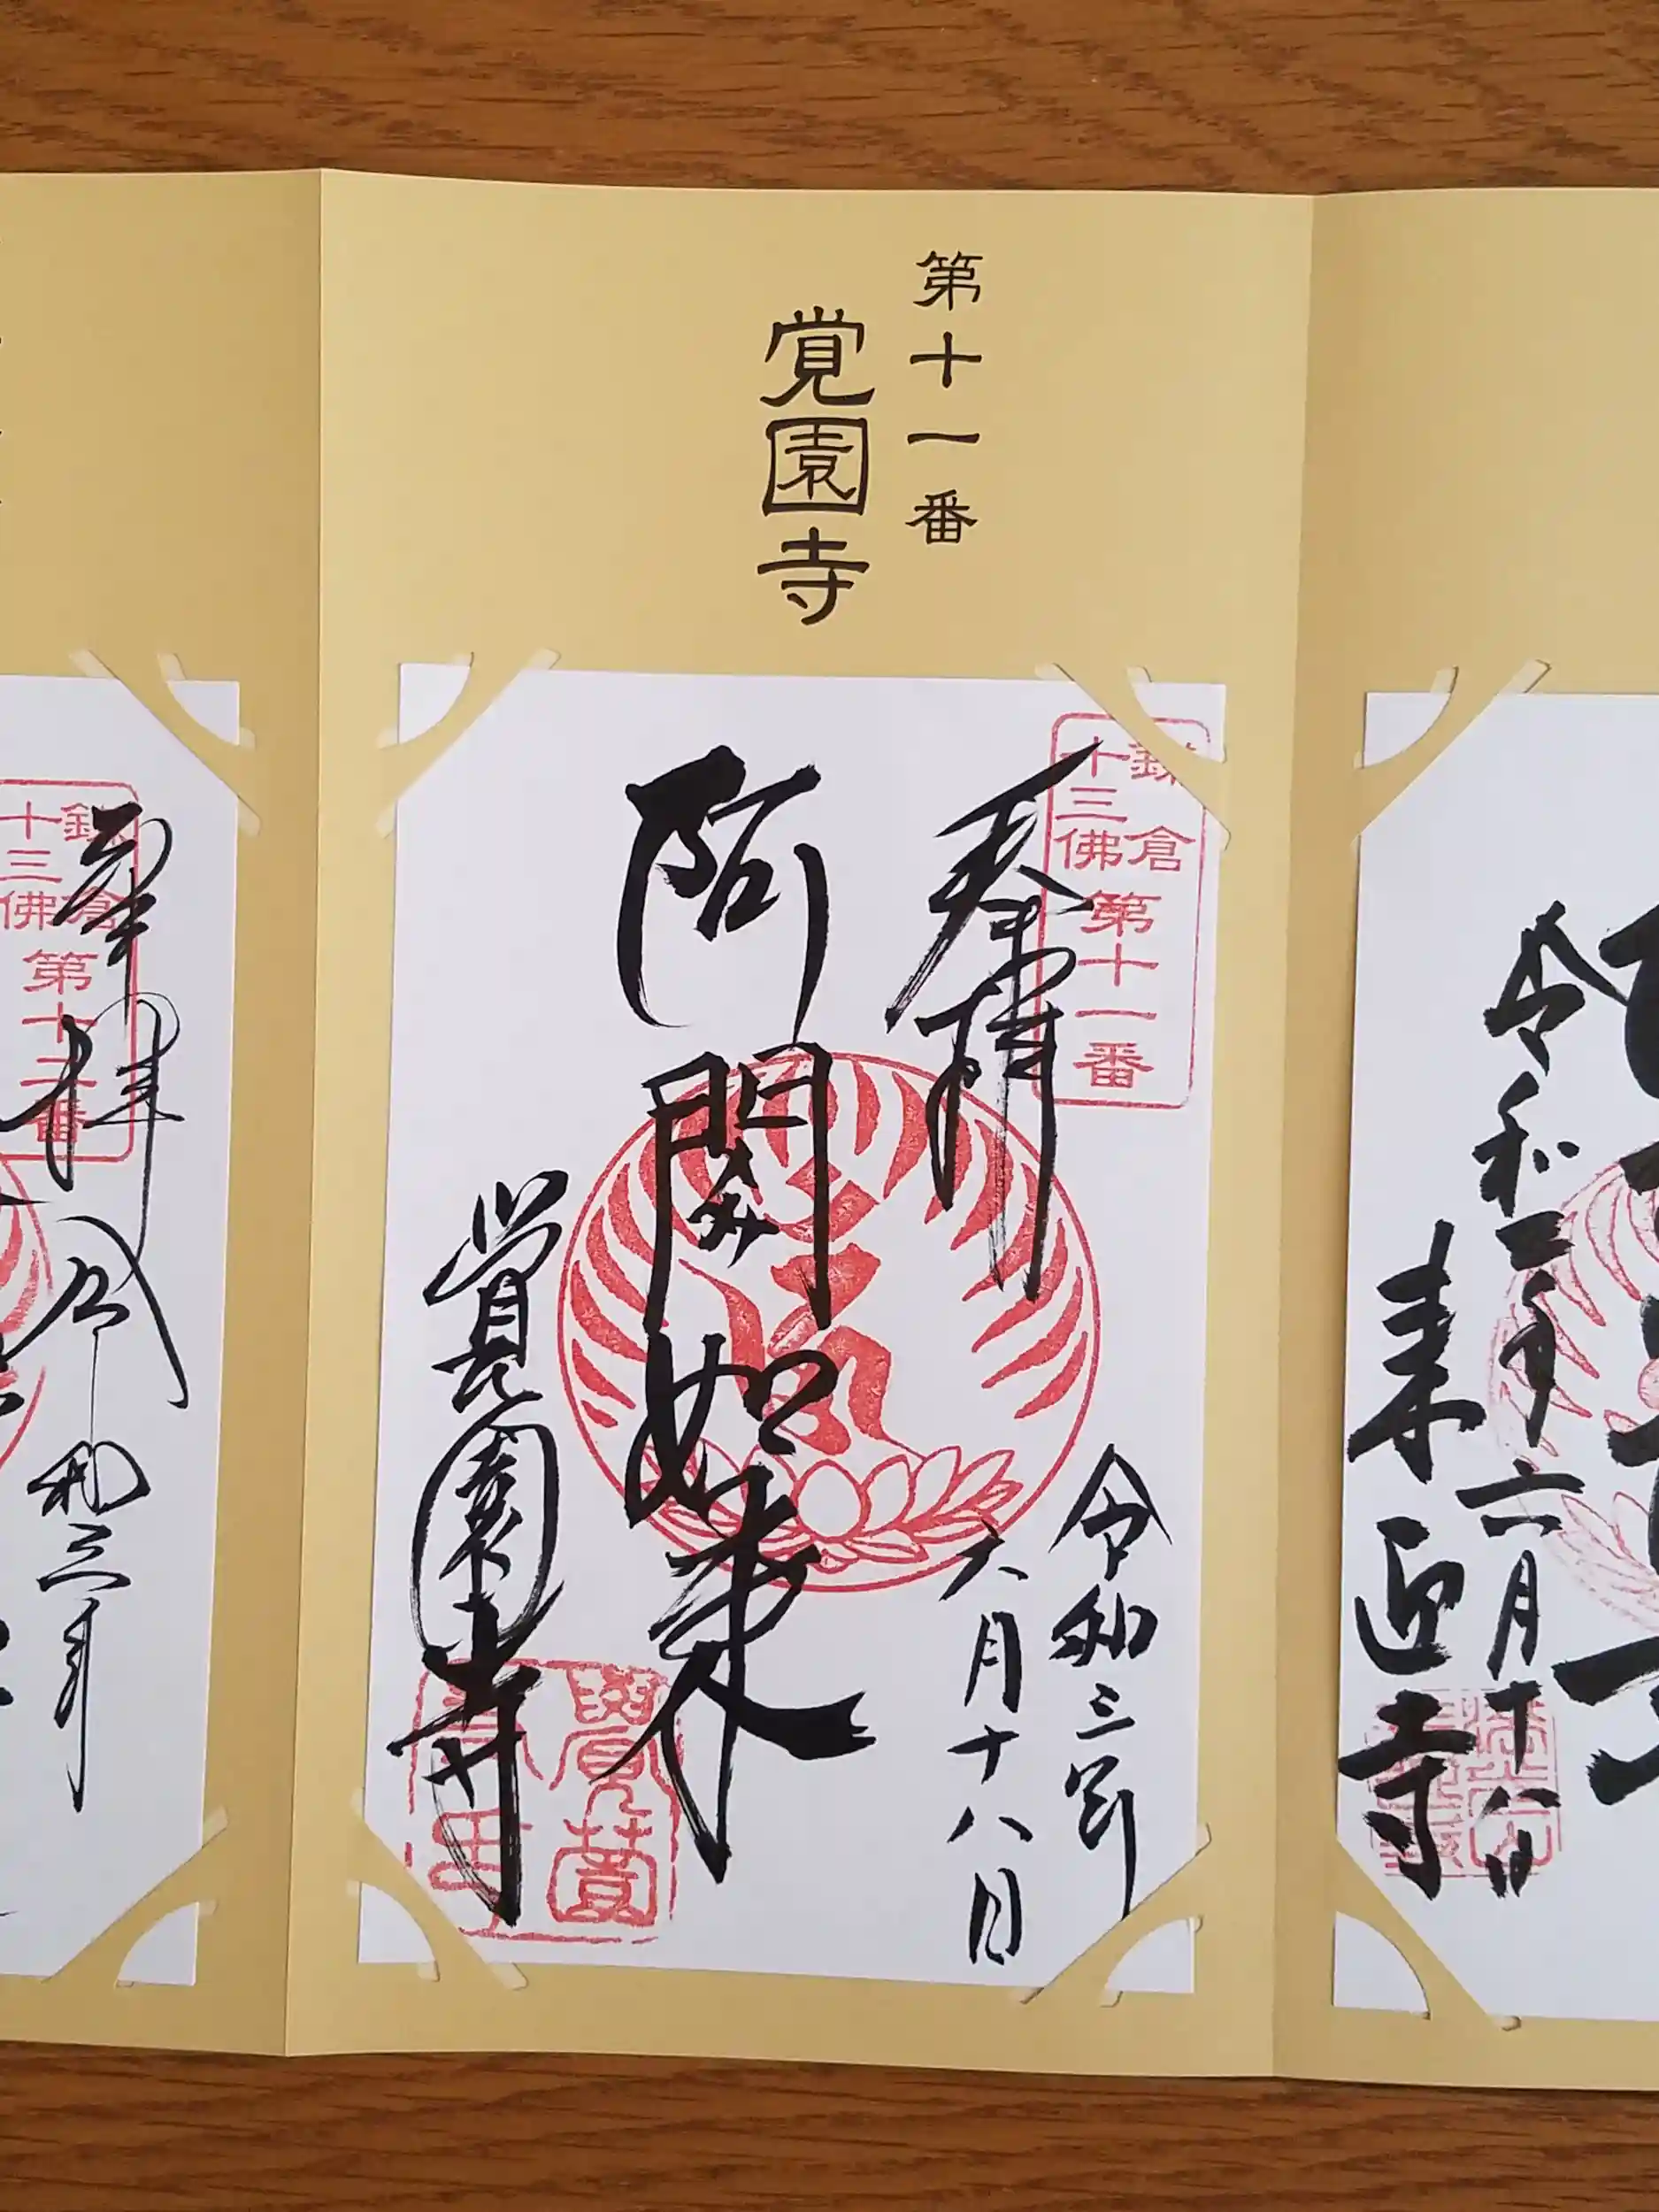 第十一番
覚園寺
鎌倉
十三佛
第十一番
奉拝
阿閦如来
覚園寺
令和三年
六月十八日
令和三年六月十八日
来迎寺
鎌倉
十三佛
第十二番
奉拝
令和三年